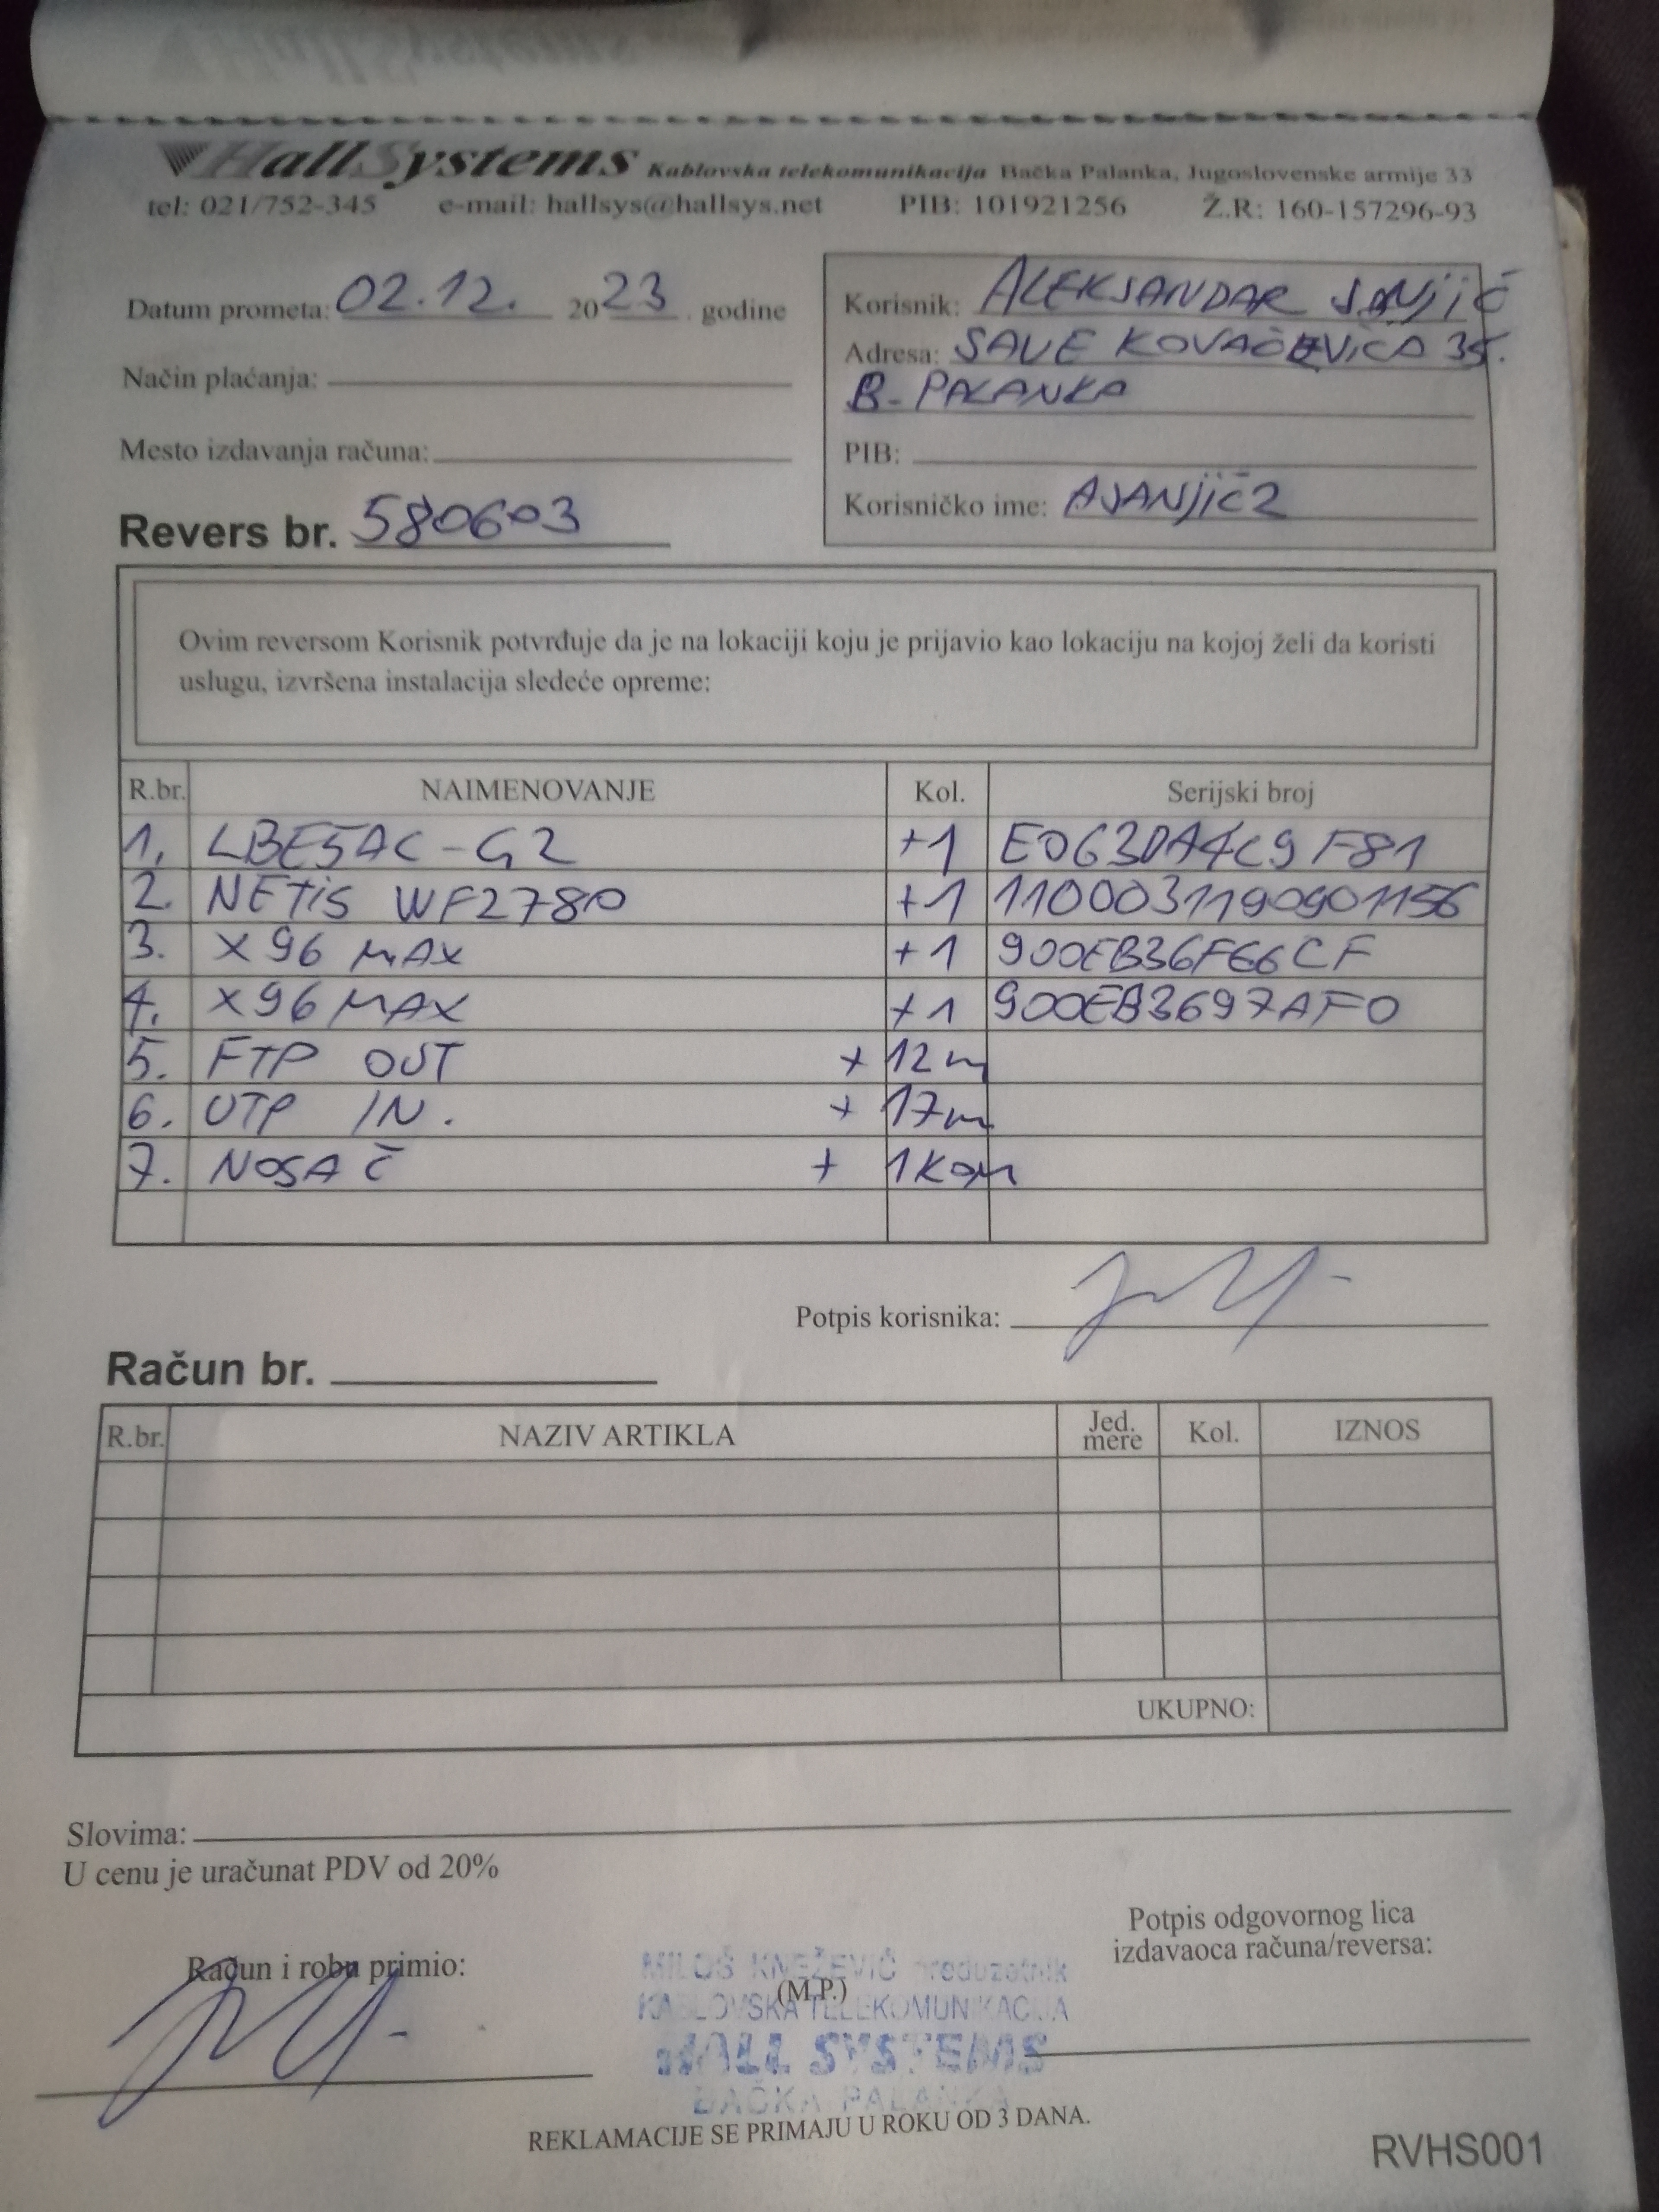 HallSystems Kablovska telekomunikacija Bačka Palanka, Jugoslovenske armije 33
tel: 021/752-345 e-mail: hallsys@hallsys.net PIB: 101921256 Ž.R: 160-157296-93
Datum prometa: 02.12. 2023. godine
Način plaćanja:
Mesto izdavanja računa:
Revers br. 580603
Korisnik: ALEKSANDAR SANJIĆ
Adresa: SAVE KOVAČEVIĆA 35.
B. PALANKA
PIB:
Korisničko ime: ASANJIĆ2
Ovim reversom Korisnik potvrđuje da je na lokaciji koju je prijavio kao lokaciju na kojoj želi da koristi
uslugu, izvršena instalacija sledeće opreme:
R.br. NAIMENOVANJE Kol. Serijski broj
1. LBE5AC-G2 +1 E063DA4C9F81
2. NETIS WF2780 +1 1100031190901156
3. X96 MAX +1 900EB36F66CF
4. X96 MAX +1 900EB3697AF0
5. FTP OUT + 12m
6. UTP IN. + 17m
7. NOSAČ + 1KOM
Potpis korisnika:
Račun br.
R.br. NAZIV ARTIKLA Jed. mere Kol. IZNOS
UKUPNO:
Slovima:
U cenu je uračunat PDV od 20%
Potpis odgovornog lica
izdavaoca računa/reversa:
Račun i robu primio:
MILOŠ KNEŽEVIĆ preduzetnik
(M.P.)
KABLOVSKA TELEKOMUNIKACIJA
HALL SYSTEMS
BAČKA PALANKA
REKLAMACIJE SE PRIMAJU U ROKU OD 3 DANA.
RVHS001